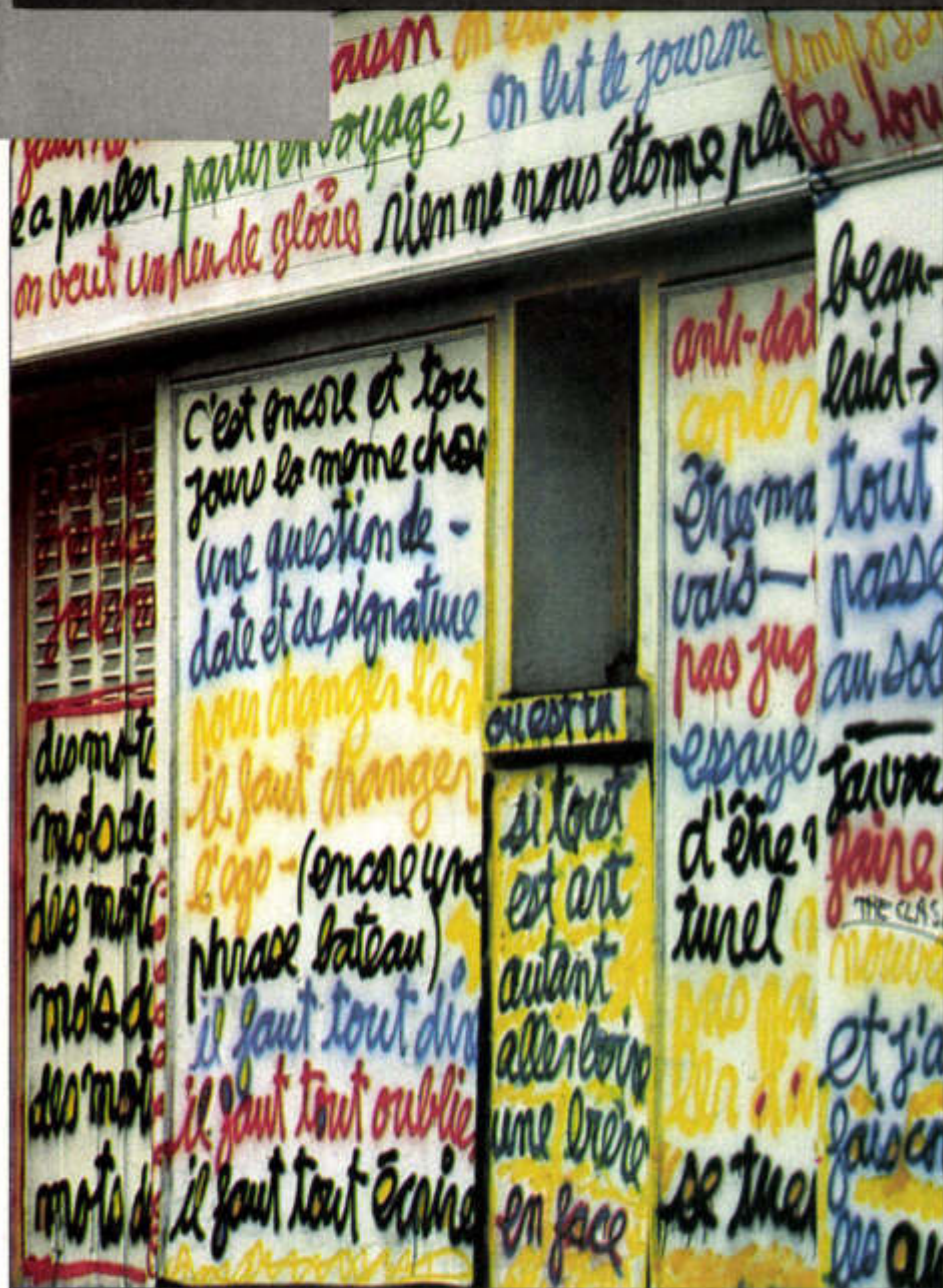 aison on
on lit le journ
imposs
parler, partir en voyage,
de tou
on veut un peu de gloire rien ne nous étonne plu
c'est encore et tou
jours la meme chose
une question de -
date et de signature
pour changer l'art
il faut changer
l'ego - (encore une
phrase bateau)
il faut tout dire
il faut tout oublier
il faut tout écrire
des mots
mots de
des mots
mots d
des mots
mots d
ou est tu
si tout
est art
autant
aller boire
une bière
en face
anti-dat
copier
être ma
vais —
pas jug
essaye
d'être n
turel
pas pa
ler d'a
se tuer
beau-
laid→
tout
passe
au sol
j'aivou
faire
THE CLAS
nouve
et j'a
fais con
les qu